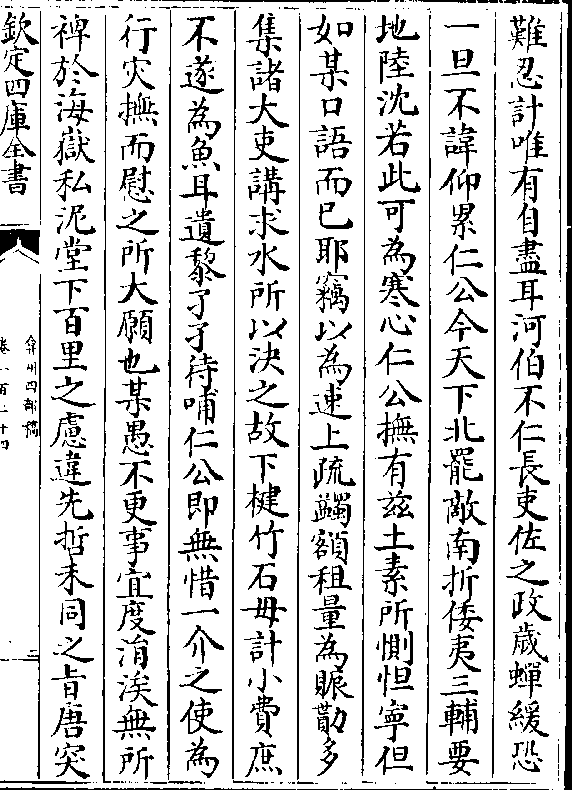 難忍計唯有自盡耳河伯不仁長吏佐之政歲蟬緩恐
一旦不諱仰累仁公今天下北罷敵南折倭夷三輔要
地陸沈若此可為寒心仁公撫有兹土素所惻怛寧但
如某口語而已耶竊以為速上疏蠲額租量為賑勸多
集諸大吏講求水所以決之故下楗竹石毋計小費庶
不遂為魚耳遺黎孑孑待哺仁公即無惜一介之使為
行灾撫而慰之所大願也某愚不更事宜度涓涘無所
裨於海嶽私泥堂下百里之慮違先哲未同之旨唐突
欽定四庫全書
弇州四部稿
卷一百二十四
三